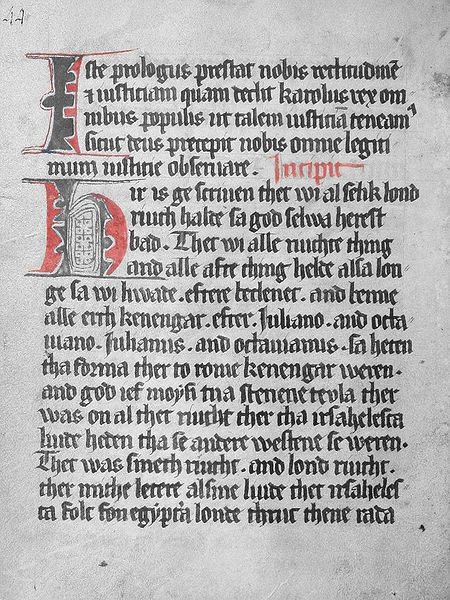 44
Iste prologus prestat nobis rectitudinē
⁊ iusticiam quam dedit karolus rex om
nibus populis ut talem iusticiā teneam⁊
sicut deus precepit nobis omne legiti
mum iusticie observare. Incipit
Hir is ge scriuen thet wi al lond
riuch halde sa god selwa herest
bad. Thet wi alle riuchte thing
and alle afte thing helde alsa lon
ge sa wi. eftere. and
alle erth kenengar. efter. Juliano. and octa
uiano. Julianus. and octauianus. sa heten
tha forma ther to rome kenengar weren.
and god ief moysi tua stenene teula ther
was on al thet riucht ther tha irsahelesca
liude heden tha se andere westene se weren.
Thet was smeth riucht. and lond riucht.
ther letere alsine liude thet irsaheles
ca folc fon egypta londe thruc thene rada